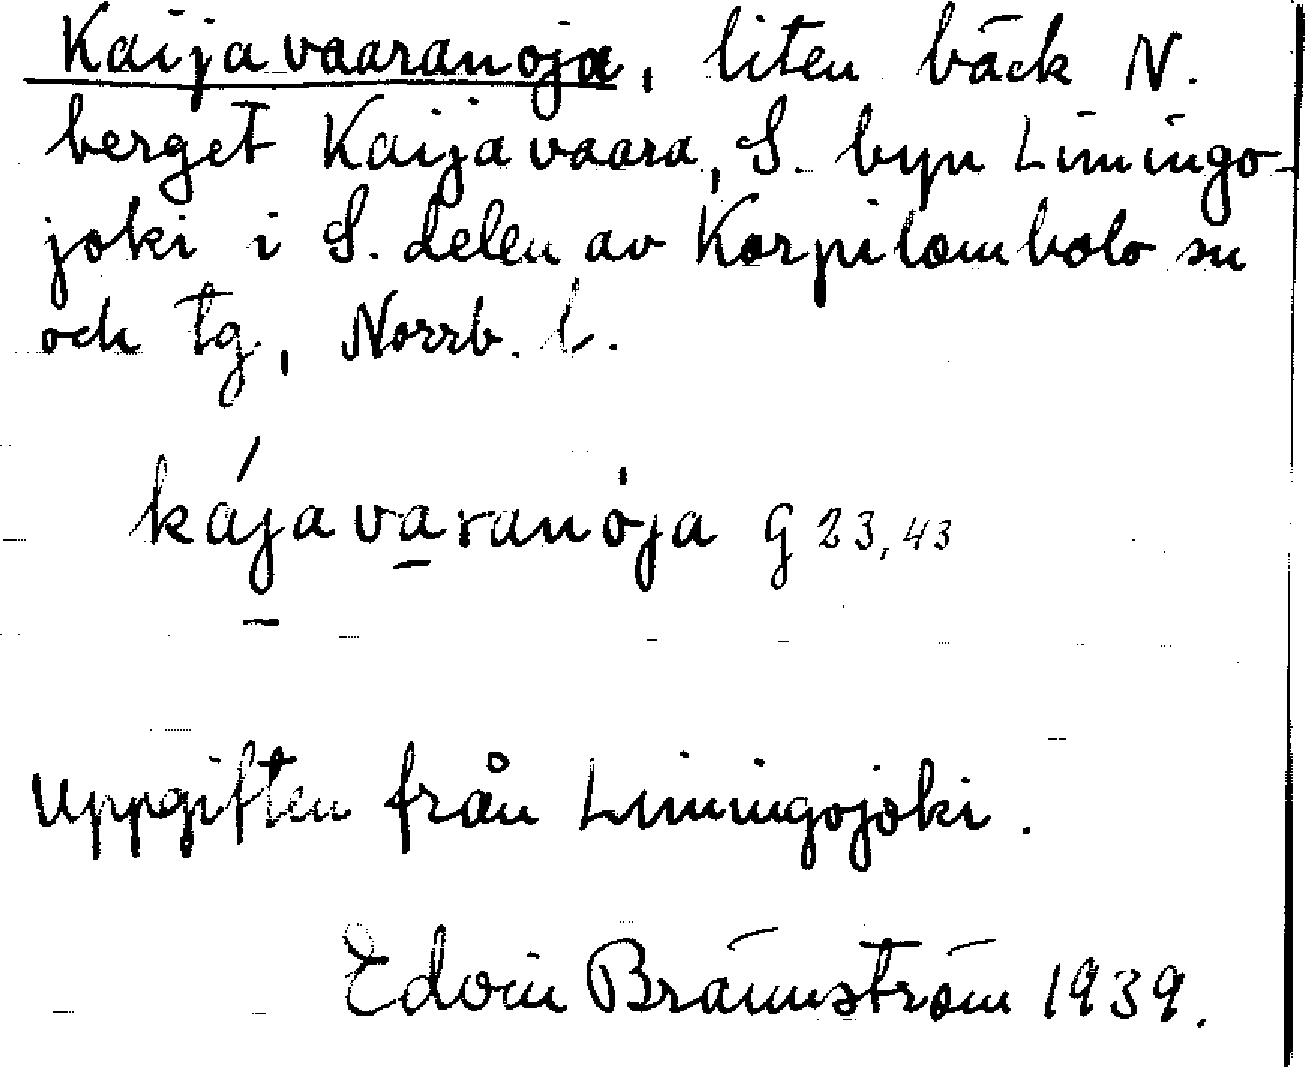 Kaijavaaranoja, liten bäck N.
berget Kaijavaara, S. byn Limingo-
joki i S. delen av Korpilombolo sn
och tg, Norrb. l.
kájavaranója G 23,43
Uppgiften från Limingojoki.
Edvin Brännström 1939.